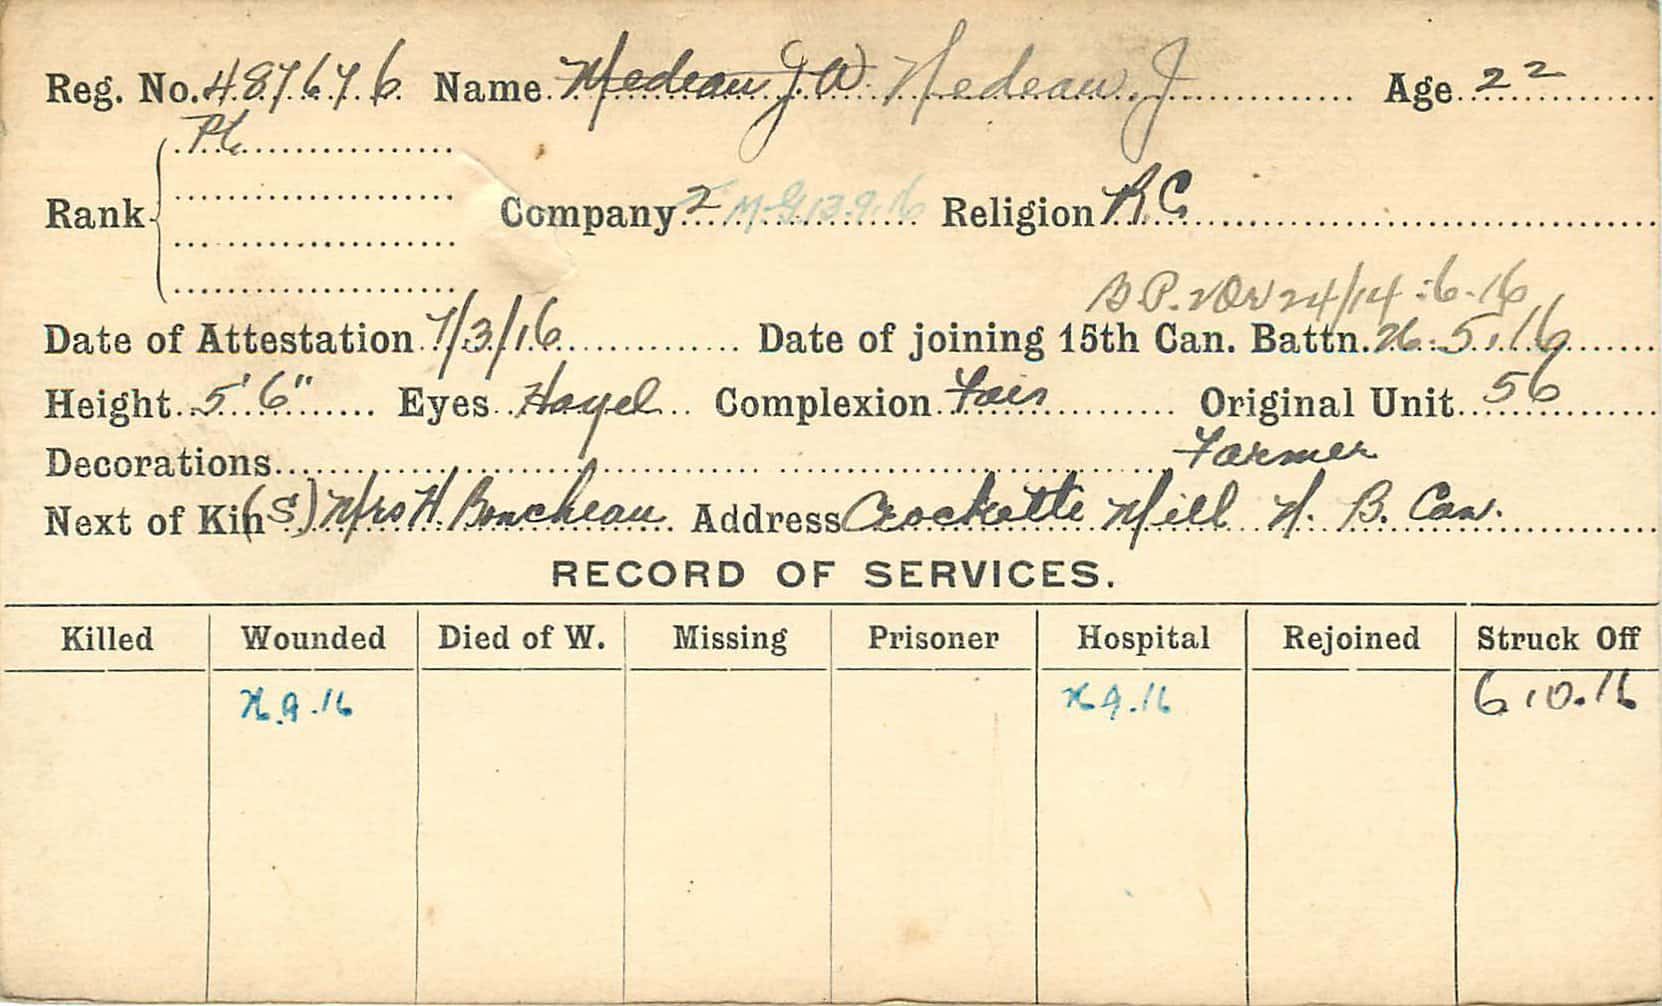 Reg. No. 487676 Name Medeau J. W. Nedeau, J Age 22
Pte
Rank Company 2 M.G 13.9.16 Religion R.C
24/14-6-16
Date of Attestation 7/3/16 Date of joining 15th Can. Battn. 26.5.16
Height 5'6" Eyes Hazel Complexion Fair Original Unit 56
Decorations Farmer
Next of Kin (S) Mrs H. Boucheau Address Crockette Mill N. B. Can.
RECORD OF SERVICES.
Killed Wounded Died of W. Missing Prisoner Hospital Rejoined Struck Off
26.9.16 26.9.16 6.10.16